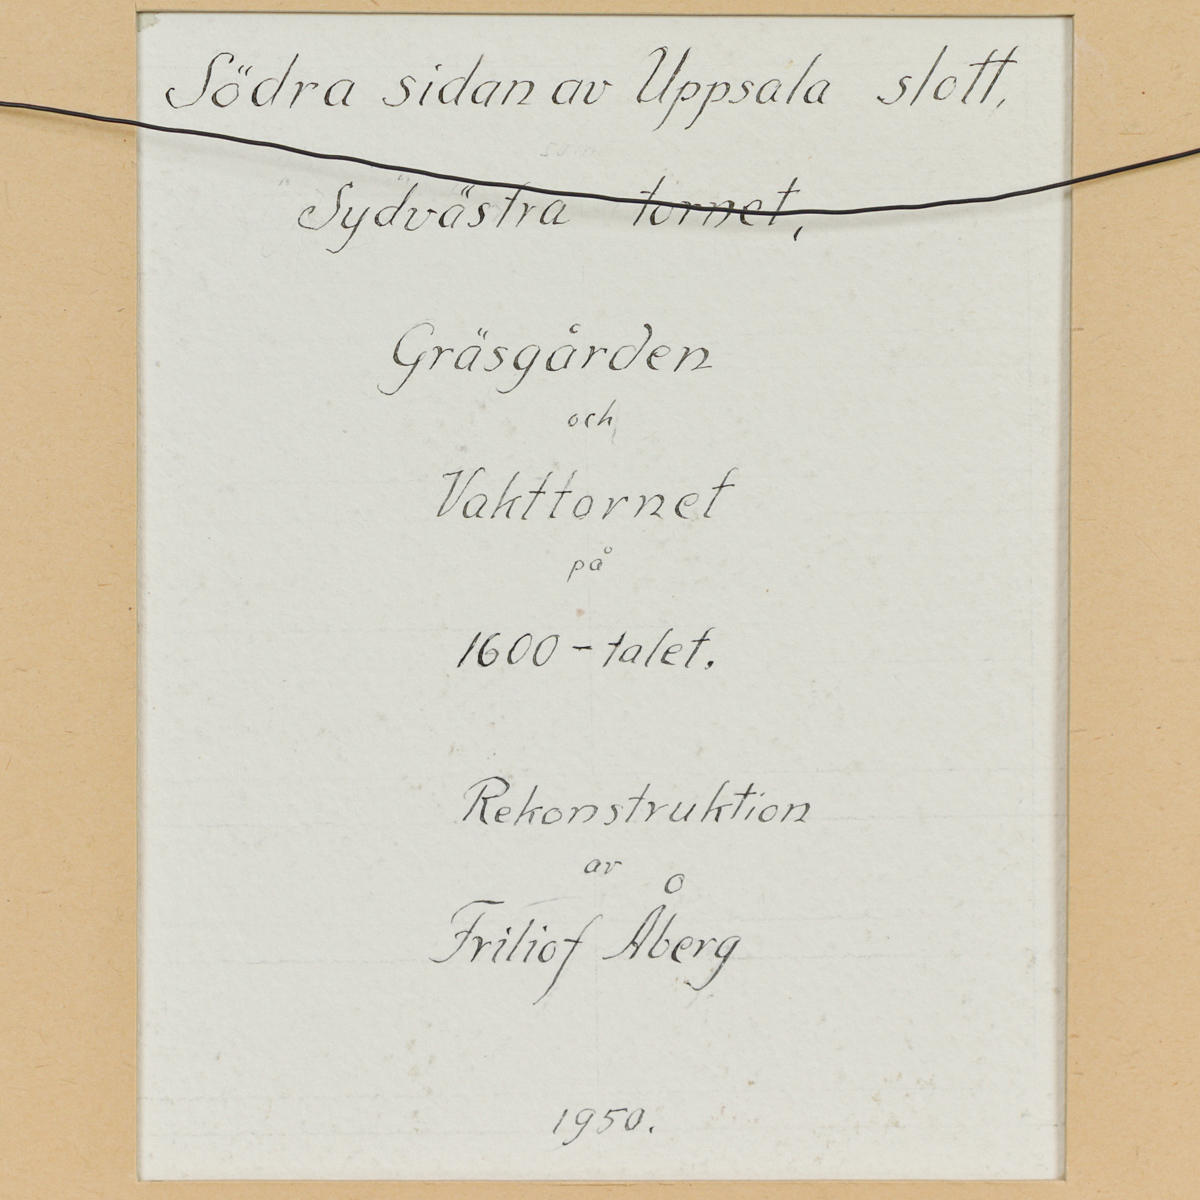 Södra sidan av Uppsala slott,
Sydvästra tornet,
Gräsgården
och
Vakttornet
på
1600-talet.
Rekonstruktion
av
Fritiof Åberg
1950.